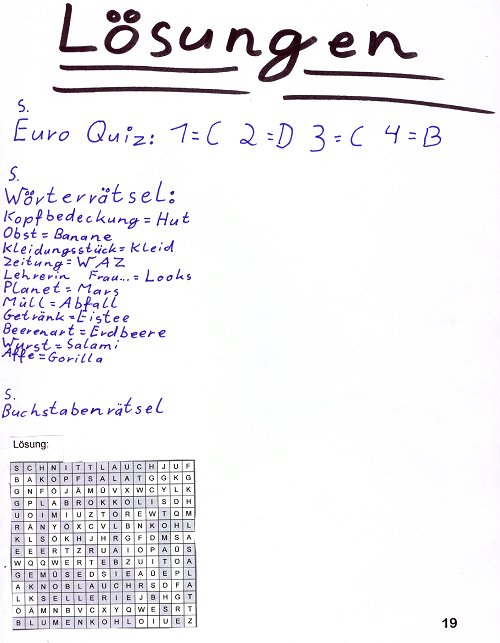 Lösungen
S.
Euro Quiz: 1=C 2=D 3=C 4=B
S.
Wörterrätsel:
Kopfbedeckung=Hut
Obst=Banane
Kleidungsstück=Kleid
Zeitung=WAZ
Lehrerin Frau...=Looks
Planet=Mars
Müll=Abfall
Getränk=Eistee
Beerenart=Erdbeere
Wurst=Salami
Affe=Gorilla
S.
Buchstabenrätsel
Lösung:
S C H N I T T L A U C H J U F
B A K O P F S A L A T G G K G
G N F Ö J Ä M Ü V X W C Y L K
G P L A B R O K K O L I S D H
U O I M I U Z T O R E W T Q M
R Ä N Y Ö X C V L B N K O H L
K L S Ö K H J H R G F D M S A
E E E R T Z R U A I O P A Ü S
W Q Q W E R T E B Z U I T O A
G E M Ü S E D S I E A Ü E P L
A K N O B L A U C H R S D F A
L K S E L L E R I E J B H G T
O Ä M N B V C X Y Q W E S R T
B L U M E N K O H L O I U E Z
19